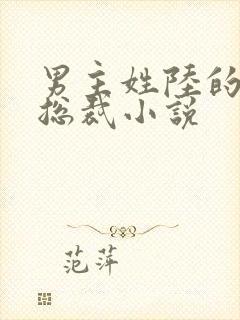 男主姓陸的
总裁小説
范萍